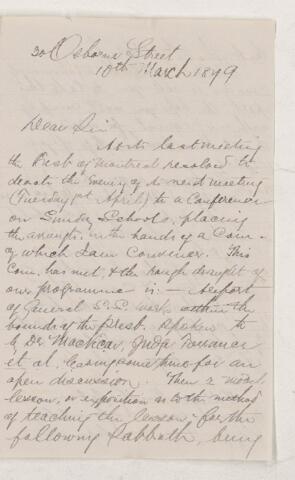 30 Osborne Street
10th March 1879
Dear Sir
At its last meeting
the Presb of Montreal resolved to
devote the Evening of its next meeting
(Tuesday 1st April) to a Conference
on Sunday Schools, placing
the arrangts. in the hands of a Com.
of which I am Convener. This
Com. has met, & the rough draught of
our programme is :- Report
of General S.S. work within the
bounds of the Presb. Spoken to
by Dr. MacVicar, Judge Torrance
et al. leaving some time for an
open discussion. Then a model
lesson, or exposition as to the method
of teaching the lesson for the
following Sabbath, being